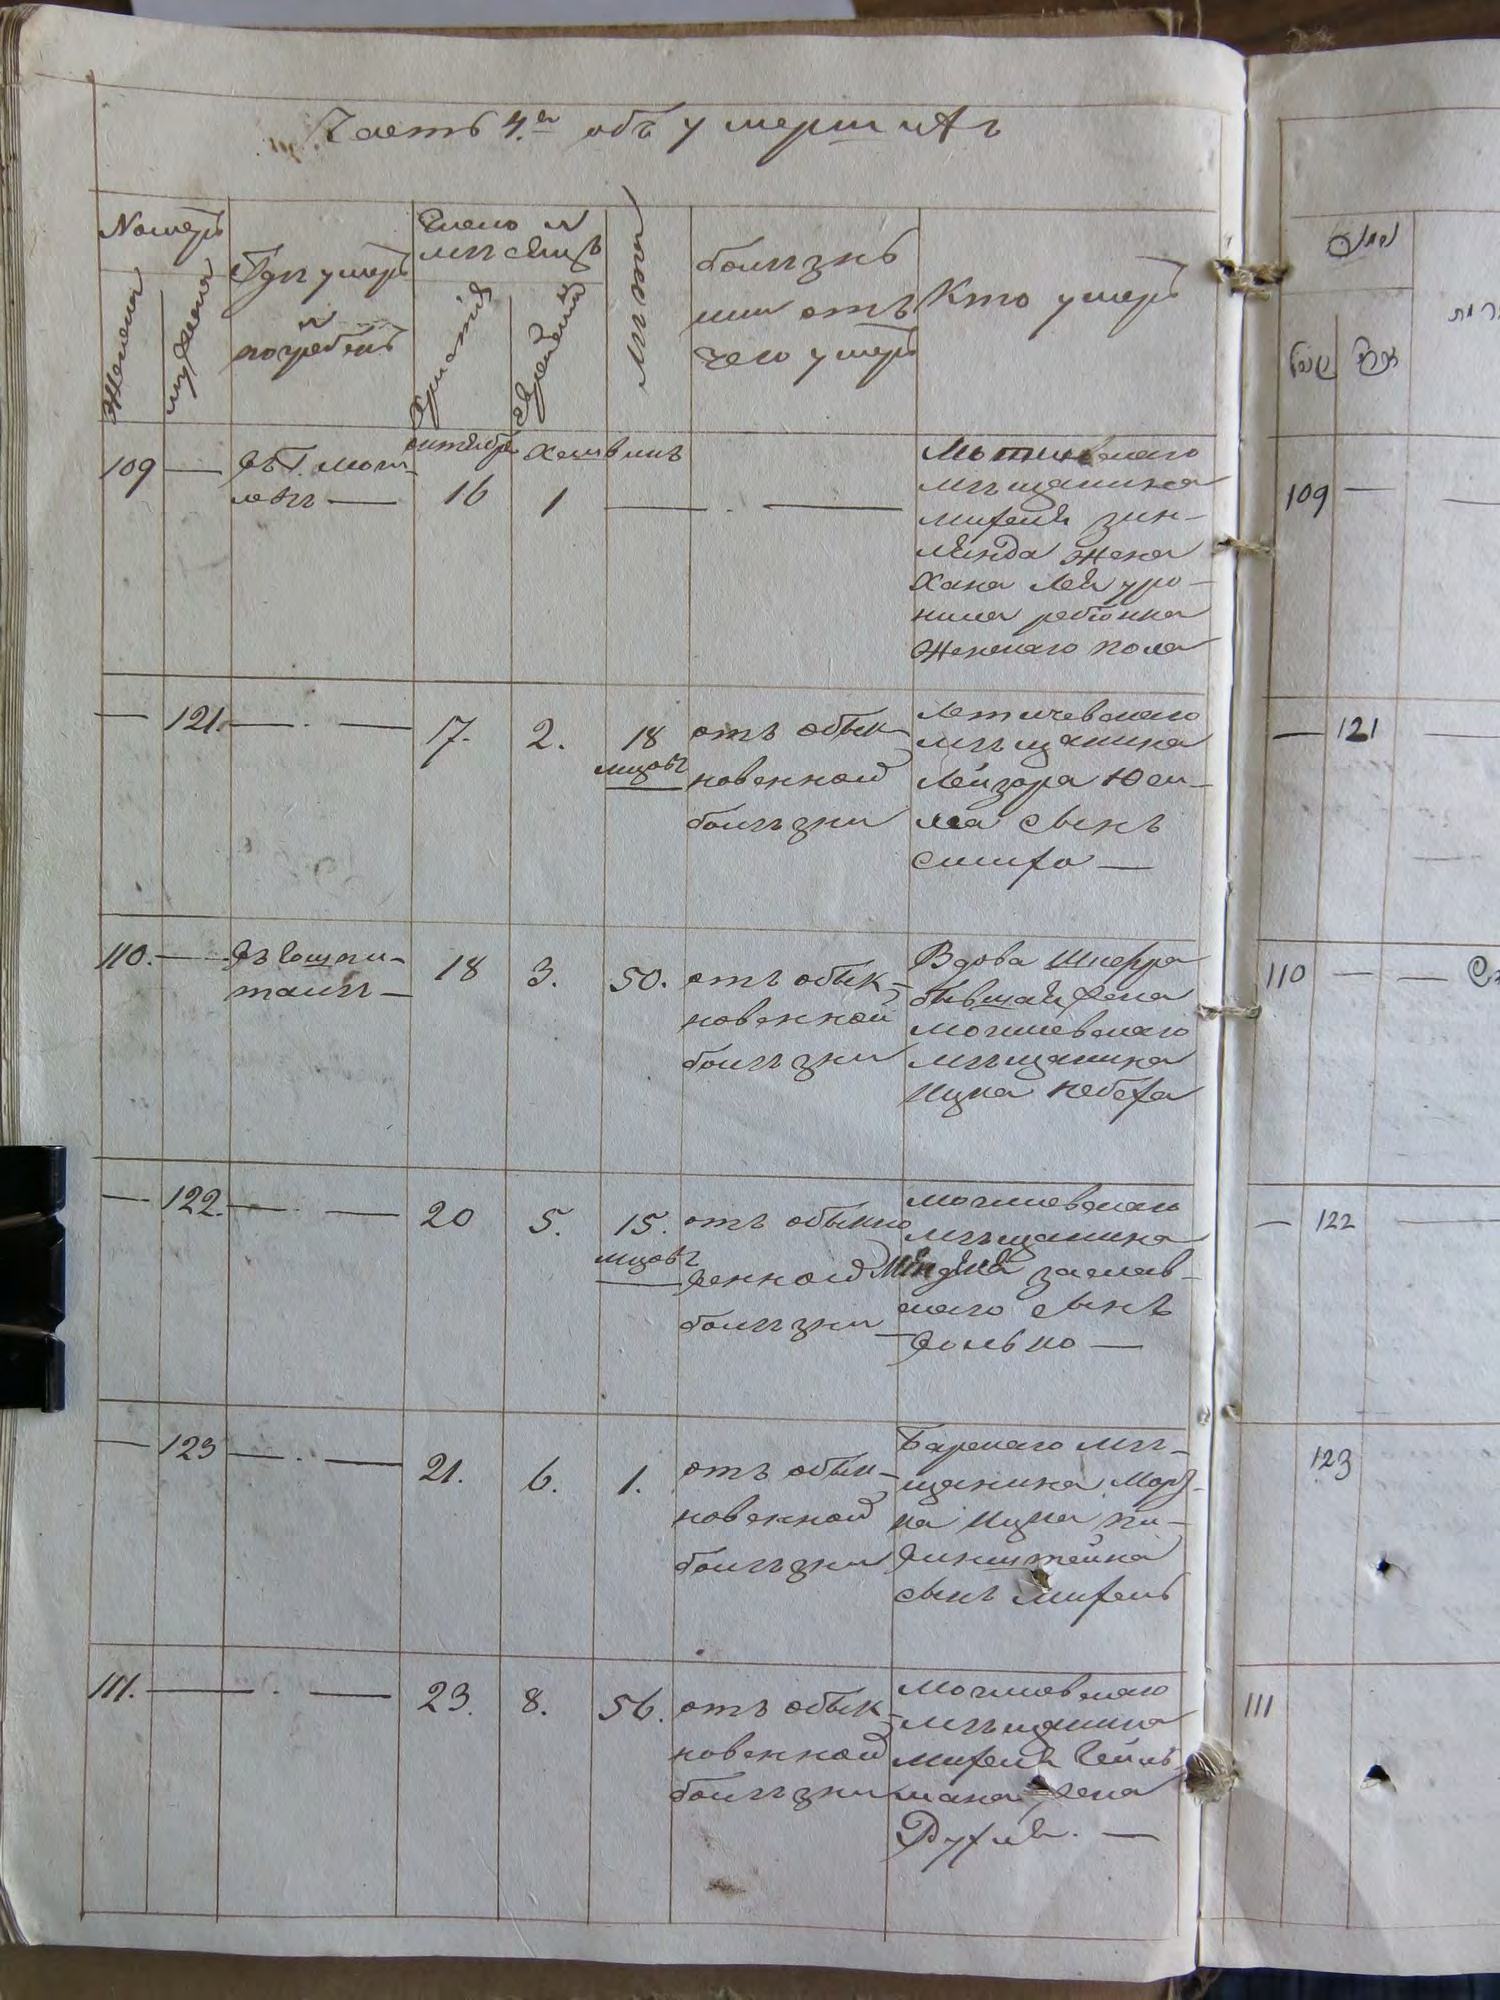 Часть 4.ая объ умершихъ
Номеръ
Женска
мужеска
Гдѣ умеръ
и
погребенъ
Число и
мѣсяцъ
Християнс
Еврейский
Лѣта
болѣзнь
или отъ
чего умеръ
Кто умеръ
109 —
въ Г. Моги-
левѣ —
октября
16
Хешвинъ
1
— . —
Могилевскаго
мѣщанина
Мехеля Зин-
жена
Хана Лея уро-
нила ребіонка
Женскаго пола
— 121. — . —
17.
2.
18
мцовъ
отъ обык-
новенной
болѣзни
Летичевскаго
мѣщанина
Лейзора
сынъ
110. —
въ Гошпи-
талѣ —
18
3.
50.
отъ обык-
новенной
болѣзни
Вдова
бывшая жена
Могилевскаго
мѣщанина
Ицка
— 122. — . —
20
5.
15.
мцовъ
отъ обыкно
венной
болѣзни —
Могилевскаго
мѣщанина
Менделя Заслав-
скаго сынъ
Волько —
— 123 — . —
21.
6.
1.
отъ обык-
новенной
болѣзни
Барскаго мѣ-
щанина Морд-
ка Ицка
сынъ Мехель
111. — . —
23.
8.
56.
отъ обык-
новенной
болѣзни
Могилевскаго
мѣщанина
Мехеля Гель-
мана жена
Рухля. —
109 —
— 121
110 — —
— 122
123
111